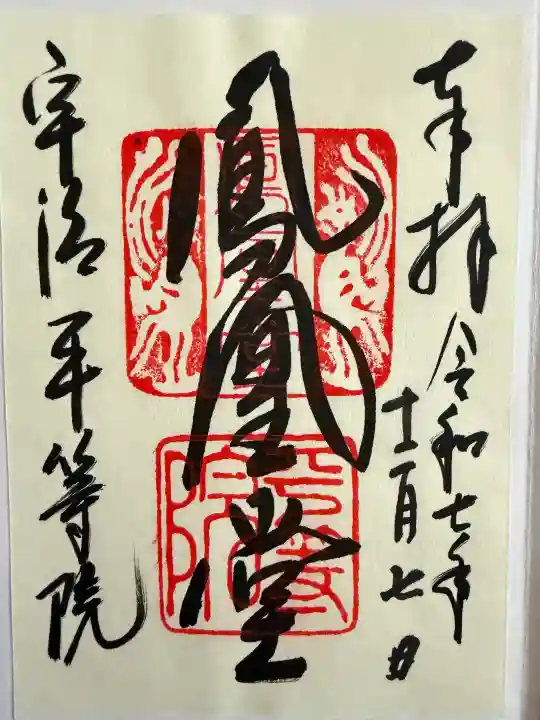 奉拝
令和七年
十二月七日
鳳凰堂
宇治平等院